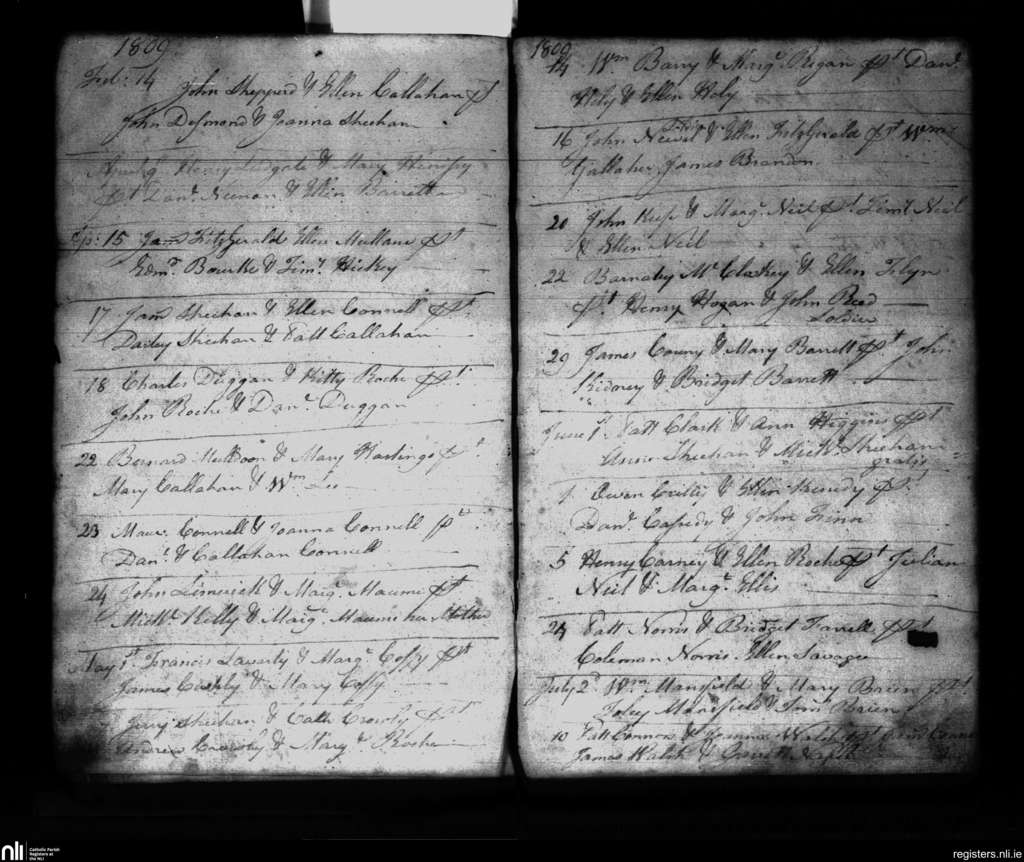 1809
Feb: 14 John Shepperd & Ellen Callahan Pt
John Desmond & Joanna Sheehan
Henry & Mary
Pt Danl. Neenan & Ellen Barrett
Ap: 15 Jam FitzGerald Ellen Mullane Pt
Edmd. Bourke & Timy. Hickey
17 Jam Sheehan & Ellen Connell Pt.
Darley Sheehan & Patt Callahan
18 Charles Duggan & Kitty Roche Pt.
John Roche & Danl. Duggan
22 Bernard Muldoon & Mary Hastings Pt
Mary Callahan & Wm Lee
23 Maur. Connell & Joanna Connell Pt
Danl. & Callahan Connell
24 John Limerick & Marg. Maume Pt
Michl. Kelly & Marg. Maume her Mother
May 1st. Francis Laverty & Margt. Coffy Pt
James & Mary Coffy
Jerry Sheehan & Cath Crowly Pt
Andrew Crowly & Mary Roche
1809
14 Wm Barry & Margt. Regan Pt Danl.
Hely & Ellen Hely
16 John & Ellen FitzGerald Pt Wm
Gallaher James Brandon
20 John & Margt. Neil Pt. Neil
& Ellen Neil
22 Barnaby Mc Cluskey & Ellen
Pt Henry Hogan & John Reed
Soldier
29 James & Mary Barrett Pt John
Kidney & Bridget Barrett
June 1st. Patt Clark & Ann Higgins Pt
Anne Sheehan & Michl. Sheehan
gratis
1. Owen & Ellen Kenedy Pt
Danl. Cassedy & John Finn
5 Henry Carney & Ellen Roche Pt Julian
Neil & Margt. Ellis
24 Patt Norris & Bridget Farrell Pt
Coleman Norris Ellen Savage
July 2d. Wm Mansfield & Mary Brien Pt
Mansfield & Brien
10 Patt Connor & Joanna Walsh Pt
James Walsh &
nli
Catholic Parish
Registers at
the NLI
registers.nli.ie